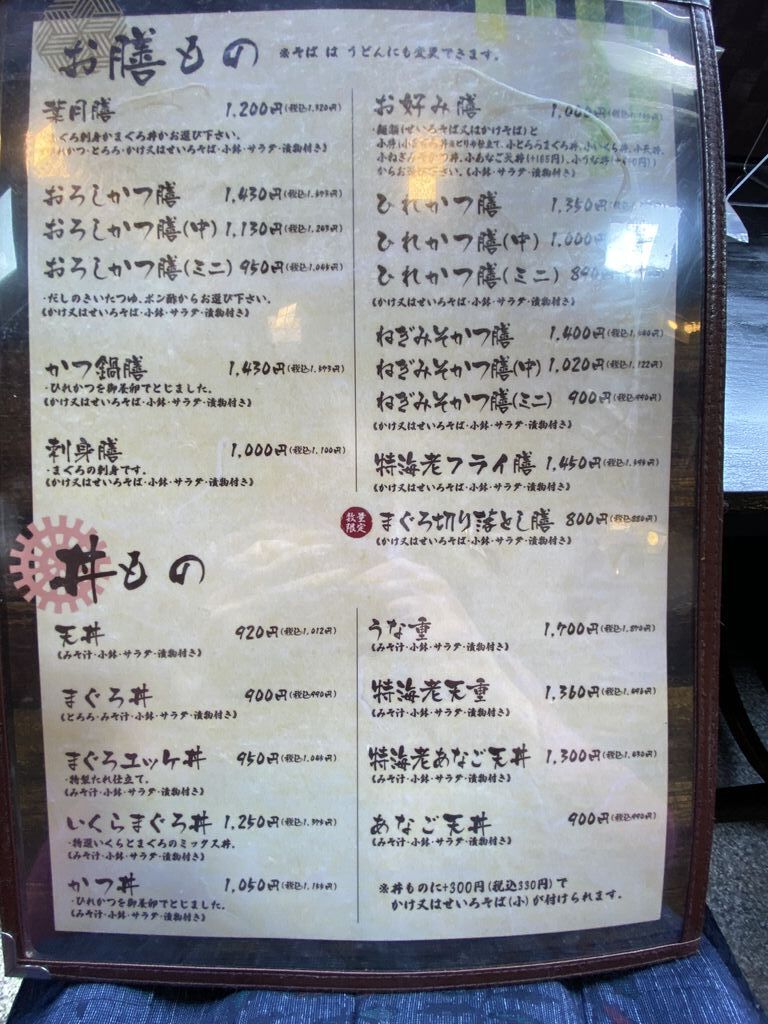 お膳もの
※そば は うどんにも変更できます。
葉月膳 1,200円(税込1,320円)
まぐろ刺身かまぐろ丼かお選び下さい。
とろろ・かけ又はせいろそば・小鉢・サラダ・漬物付き》
おろしかつ膳 1,430円
おろしかつ膳(中) 1,130円
おろしかつ膳(ミニ) 950円(税込1,045円)
・だしのきいたつゆ、ポン酢からお選び下さい。
《かけ又はせいろそば・小鉢・サラダ・漬物付き》
かつ鍋膳 1,430円
・ひれかつを御養卵でとじました。
《かけ又はせいろそば・小鉢・サラダ・漬物付き》
刺身膳 1,000円(税込1,100円)
・まぐろの刺身です。
《かけ又はせいろそば・小鉢・サラダ・漬物付き》
お好み膳
・麺類(せいろそば又はかけそば)と
からお選び下さい。《小鉢・サラダ・漬物付き》
ひれかつ膳 1,350円
ひれかつ膳(中) 1,000
ひれかつ膳(ミニ)
《かけ又はせいろそば・小鉢・サラダ・漬物付き》
ねぎみそかつ膳 1,400円
ねぎみそかつ膳(中) 1,020円(税込1,122円)
ねぎみそかつ膳(ミニ) 900円(税込990円)
《かけ又はせいろそば・小鉢・サラダ・漬物付き》
特海老フライ膳 1,450円
《かけ又はせいろそば・小鉢・サラダ・漬物付き》
数量限定 まぐろ切り落とし膳 800円(税込880円)
《かけ又はせいろそば・小鉢・サラダ・漬物付き》
丼もの
天丼 920円(税込1,012円)
《みそ汁・小鉢・サラダ・漬物付き》
まぐろ丼 900円(税込990円)
《とろろ・みそ汁・小鉢・サラダ・漬物付き》
まぐろユッケ丼 950円(税込1,045円)
・特製たれ仕立て。
《みそ汁・小鉢・サラダ・漬物付き》
いくらまぐろ丼 1,250円(税込1,375円)
・特選いくらとまぐろのミックス丼。
《みそ汁・小鉢・サラダ・漬物付き》
かつ丼 1,050円(税込1,155円)
・ひれかつを御養卵でとじました。
《みそ汁・小鉢・サラダ・漬物付き》
うな重 1,700円(税込1,870円)
《みそ汁・小鉢・サラダ・漬物付き》
特海老天重 1,360円(税込1,496円)
《みそ汁・小鉢・サラダ・漬物付き》
特海老あなご天丼 1,300円(税込1,430円)
《みそ汁・小鉢・サラダ・漬物付き》
あなご天丼 900円(税込990円)
《みそ汁・小鉢・サラダ・漬物付き》
※丼ものに+300円(税込330円)で
かけ又はせいろそば(小)が付けられます。